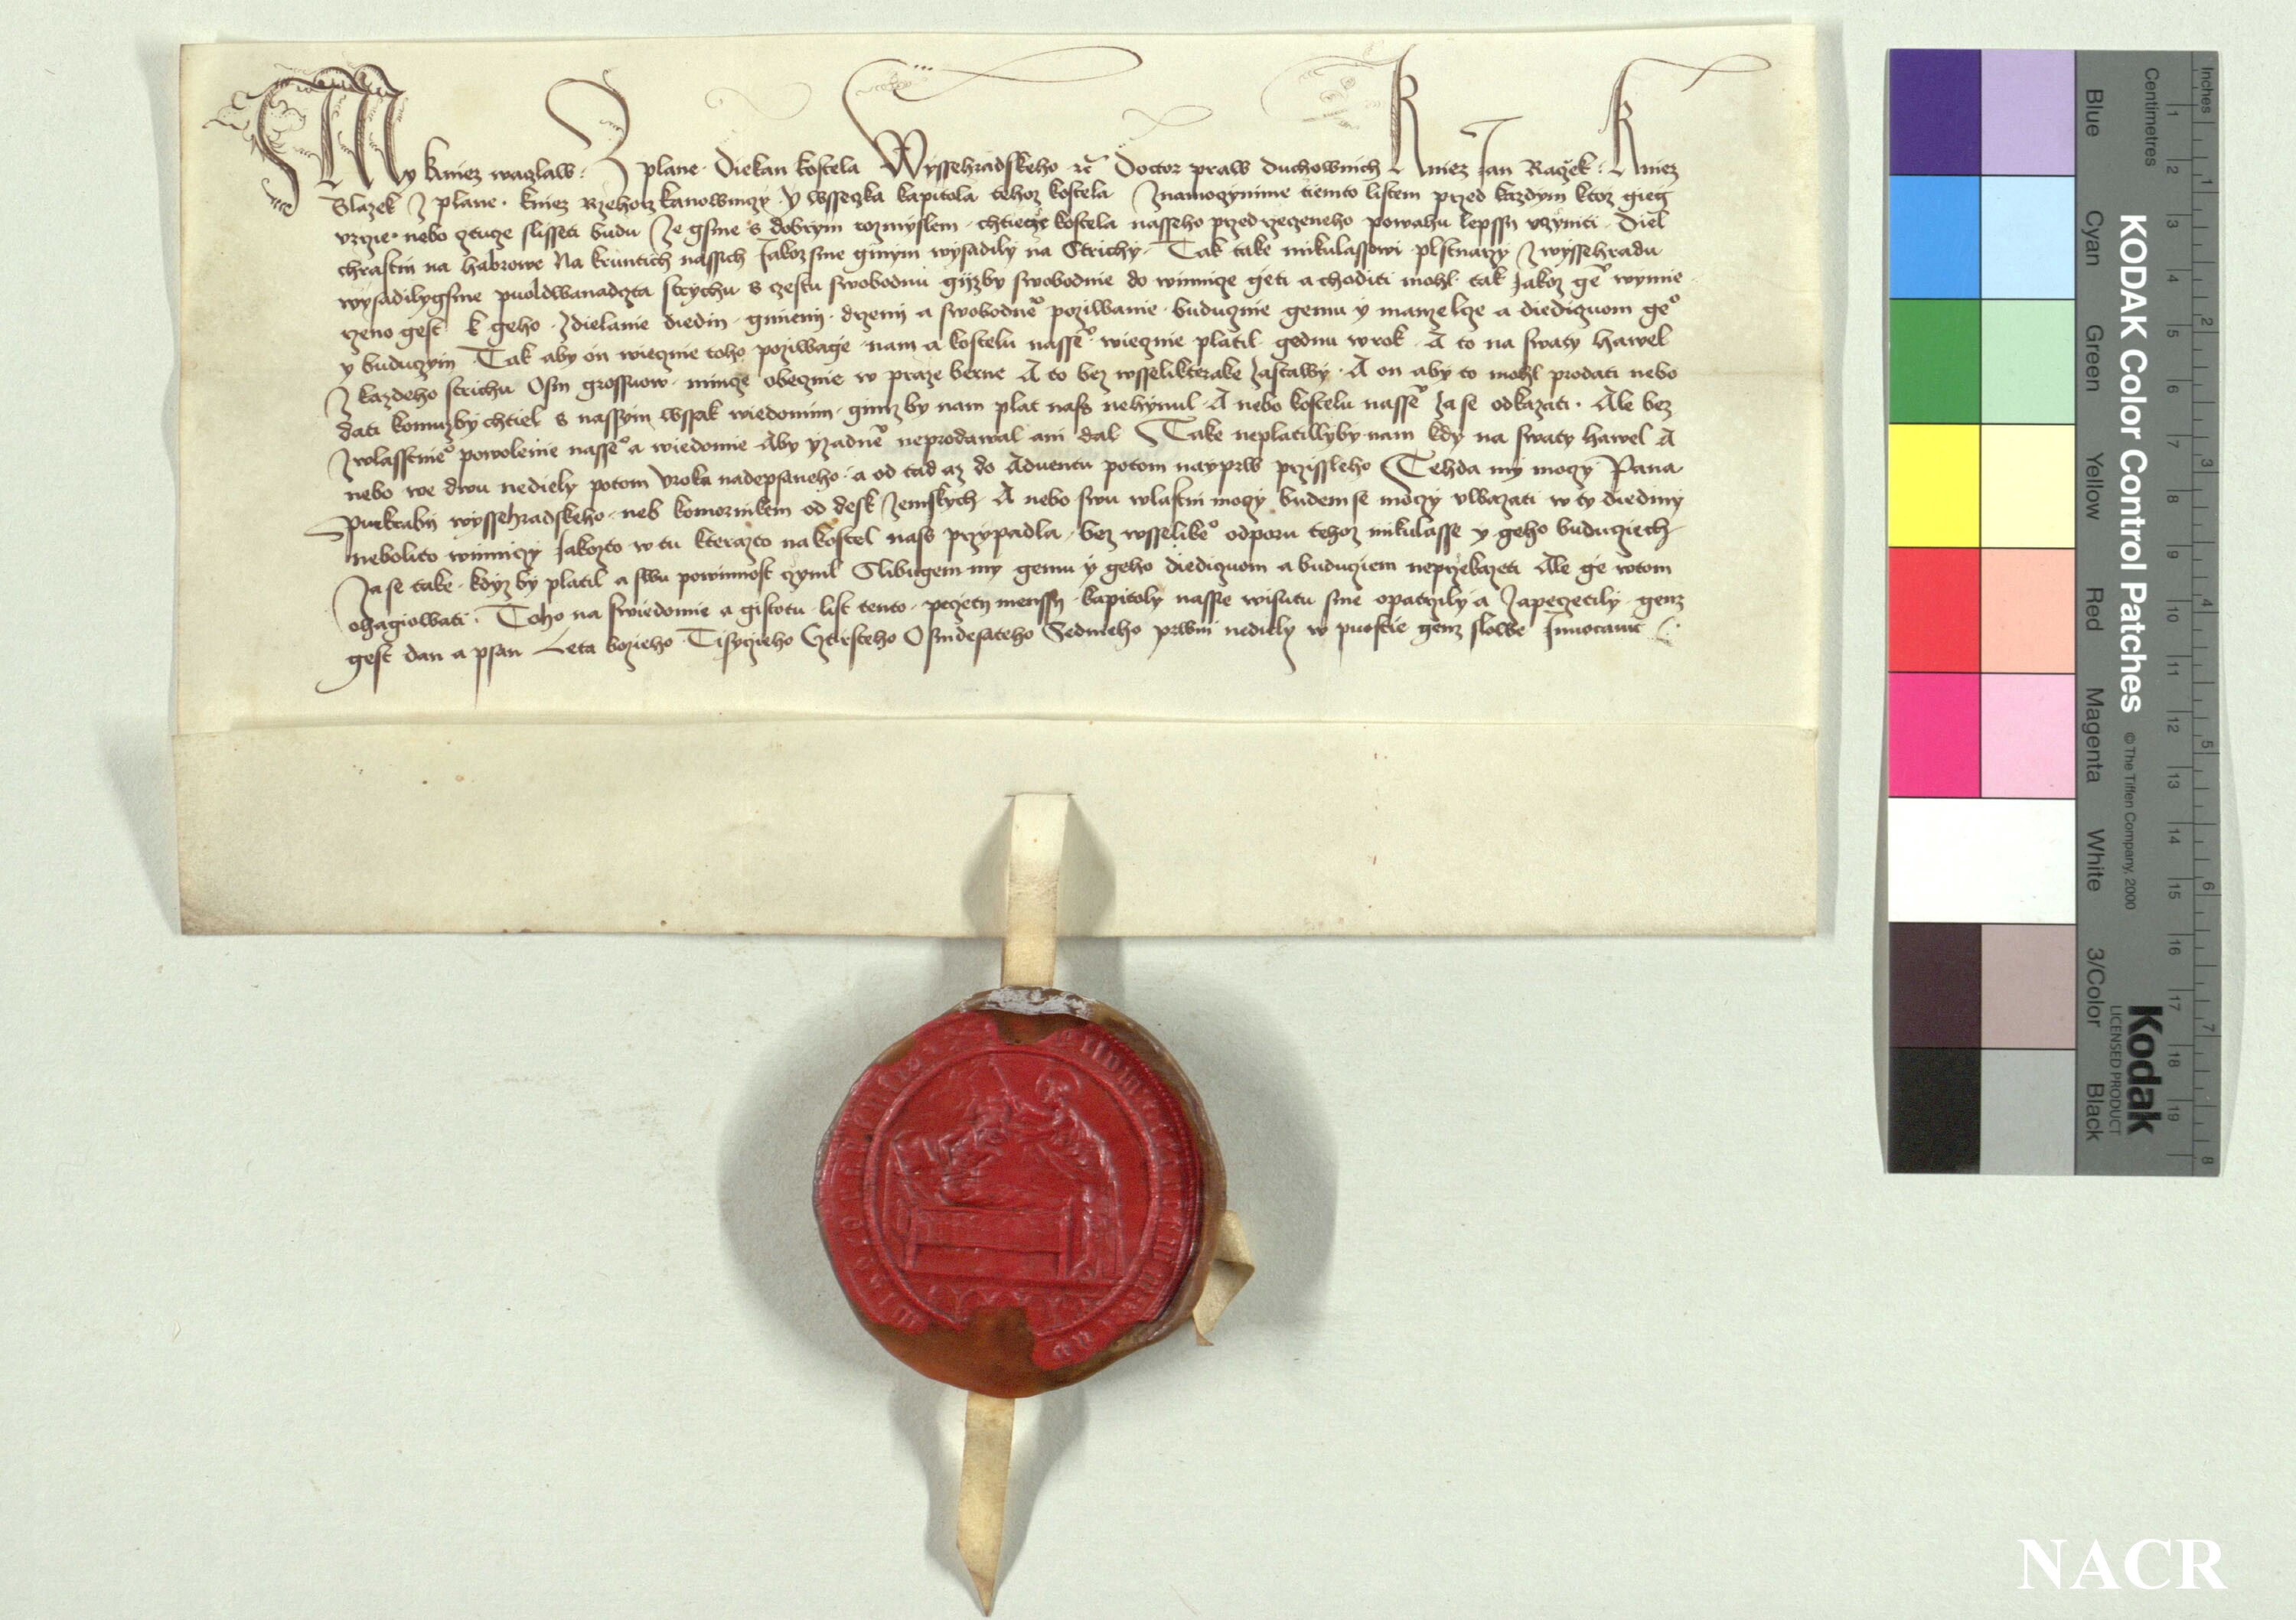 My kniez waczlaw: Z plane · Diekan kostela Wyssehradskeho ꝛc̃ Doctor praw duchownich Kniez Jan Raczek: Kniez
Blazek Z plane · kniez Rzehorz kanowniczy · y wsseczka kapitola tehoz kostela Znamo czynime tiemto listem przed kazdym ktoz gieg
vzrzie nebo cztucze slisseti budu Ze gsme s dobrym rozmyslem · chtiecze kostela nasseho przedrzeczeneho powahu lepssy vczyniti · Diel
chrastin na habrowe Na kruntich nassich Jakoz sme ginym wysadily na Strichy · Tak take mikulassowi plstnarzy Z wyssehradu
wysadilygsme puoldwanadczta strychu s czestu swobodnu gijzby swobodnie do winnicze geti a choditi mohl · tak Jakoz ge° wymie
rzeno gest k geho · Zdielanie diedin · gmieny · drzeny a swobodne° poziwanie · buducznie gemu y manzelcze a diediczuom ge°
y buduczym Tak aby on wiecznie toho poziwage · nam a kostelu nasse° · wiecznie platil gednu w rok · A to na swaty hawel
Z kazdeho strichu Osm grossuow · mincze obecznie w praze berne A to bez wsselikterake Zastawy · A on aby to mohl prodati nebo
dati komuzby chtiel s nassym wssak wiedomim · gimz by nam plat nass nehynul · A nebo kostelu nasse° Zase odkazati · Ale bez
Zwlasstnie° powolenie nasse° a wiedomie Aby yzadne° neprodawal ani dal Take neplatillyby nam kdy na swaty hawel A
nebo we dwu nediely potom vroka nadepsaneho · a od tad az do Aduentu potom nayprw przissleho Tehda my moczy Pana
Purkraby wyssehradskeho · neb komornikem od desk Zemskych A nebo swu wlastni moczy budem se moczy vwazati w ty diediny
nebolito winniczy Jakozto w tu kterazto na kostel nass przypadla · bez wsselike° odporu tehoz mikulasse y geho buducziech
Zase take · kdyz by platil a swu powinnost czynil Slibugem my gemu y geho diediczuom a buducziem neprzekazeti Ale ge w tom
ohagiowati · Toho na swiedomie a gistotu · list tento · peczety menssy · kapitoly nassie wisutu sme opatrzily a Zapeczetily · genz
gest dan a psan Leta bozieho Tisyczieho Cztirsteho Osmdesateho Sedmeho prwni nediely w puostie genz slowe Inuocauit
KODAK Color Control Patches
© The Tiffen Company, 2000
Kodak
LICENSED PRODUCT
Blue Cyan Green Yellow Red Magenta White 3/Color Black
Centimetres 1 2 3 4 5 6 7 8 9 10 11 12 13 14 15 16 17 18 19
Inches 1 2 3 4 5 6 7 8
NACR